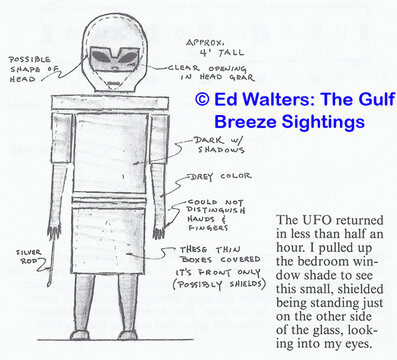 POSSIBLE
SHAPE OF
HEAD
APPROX.
4' TALL
CLEAR OPENING
IN HEAD GEAR
© Ed Walters: The Gulf
Breeze Sightings
DARK W/
SHADOWS
GREY COLOR
COULD NOT
DISTINGUISH
HANDS &
FINGERS
SILVER
ROD
THESE THIN
BOXES COVERED
IT'S FRONT ONLY
(POSSIBLY SHIELDS)
The UFO returned
in less than half an
hour. I pulled up
the bedroom win-
dow shade to see
this small, shielded
being standing just
on the other side
of the glass, look-
ing into my eyes.